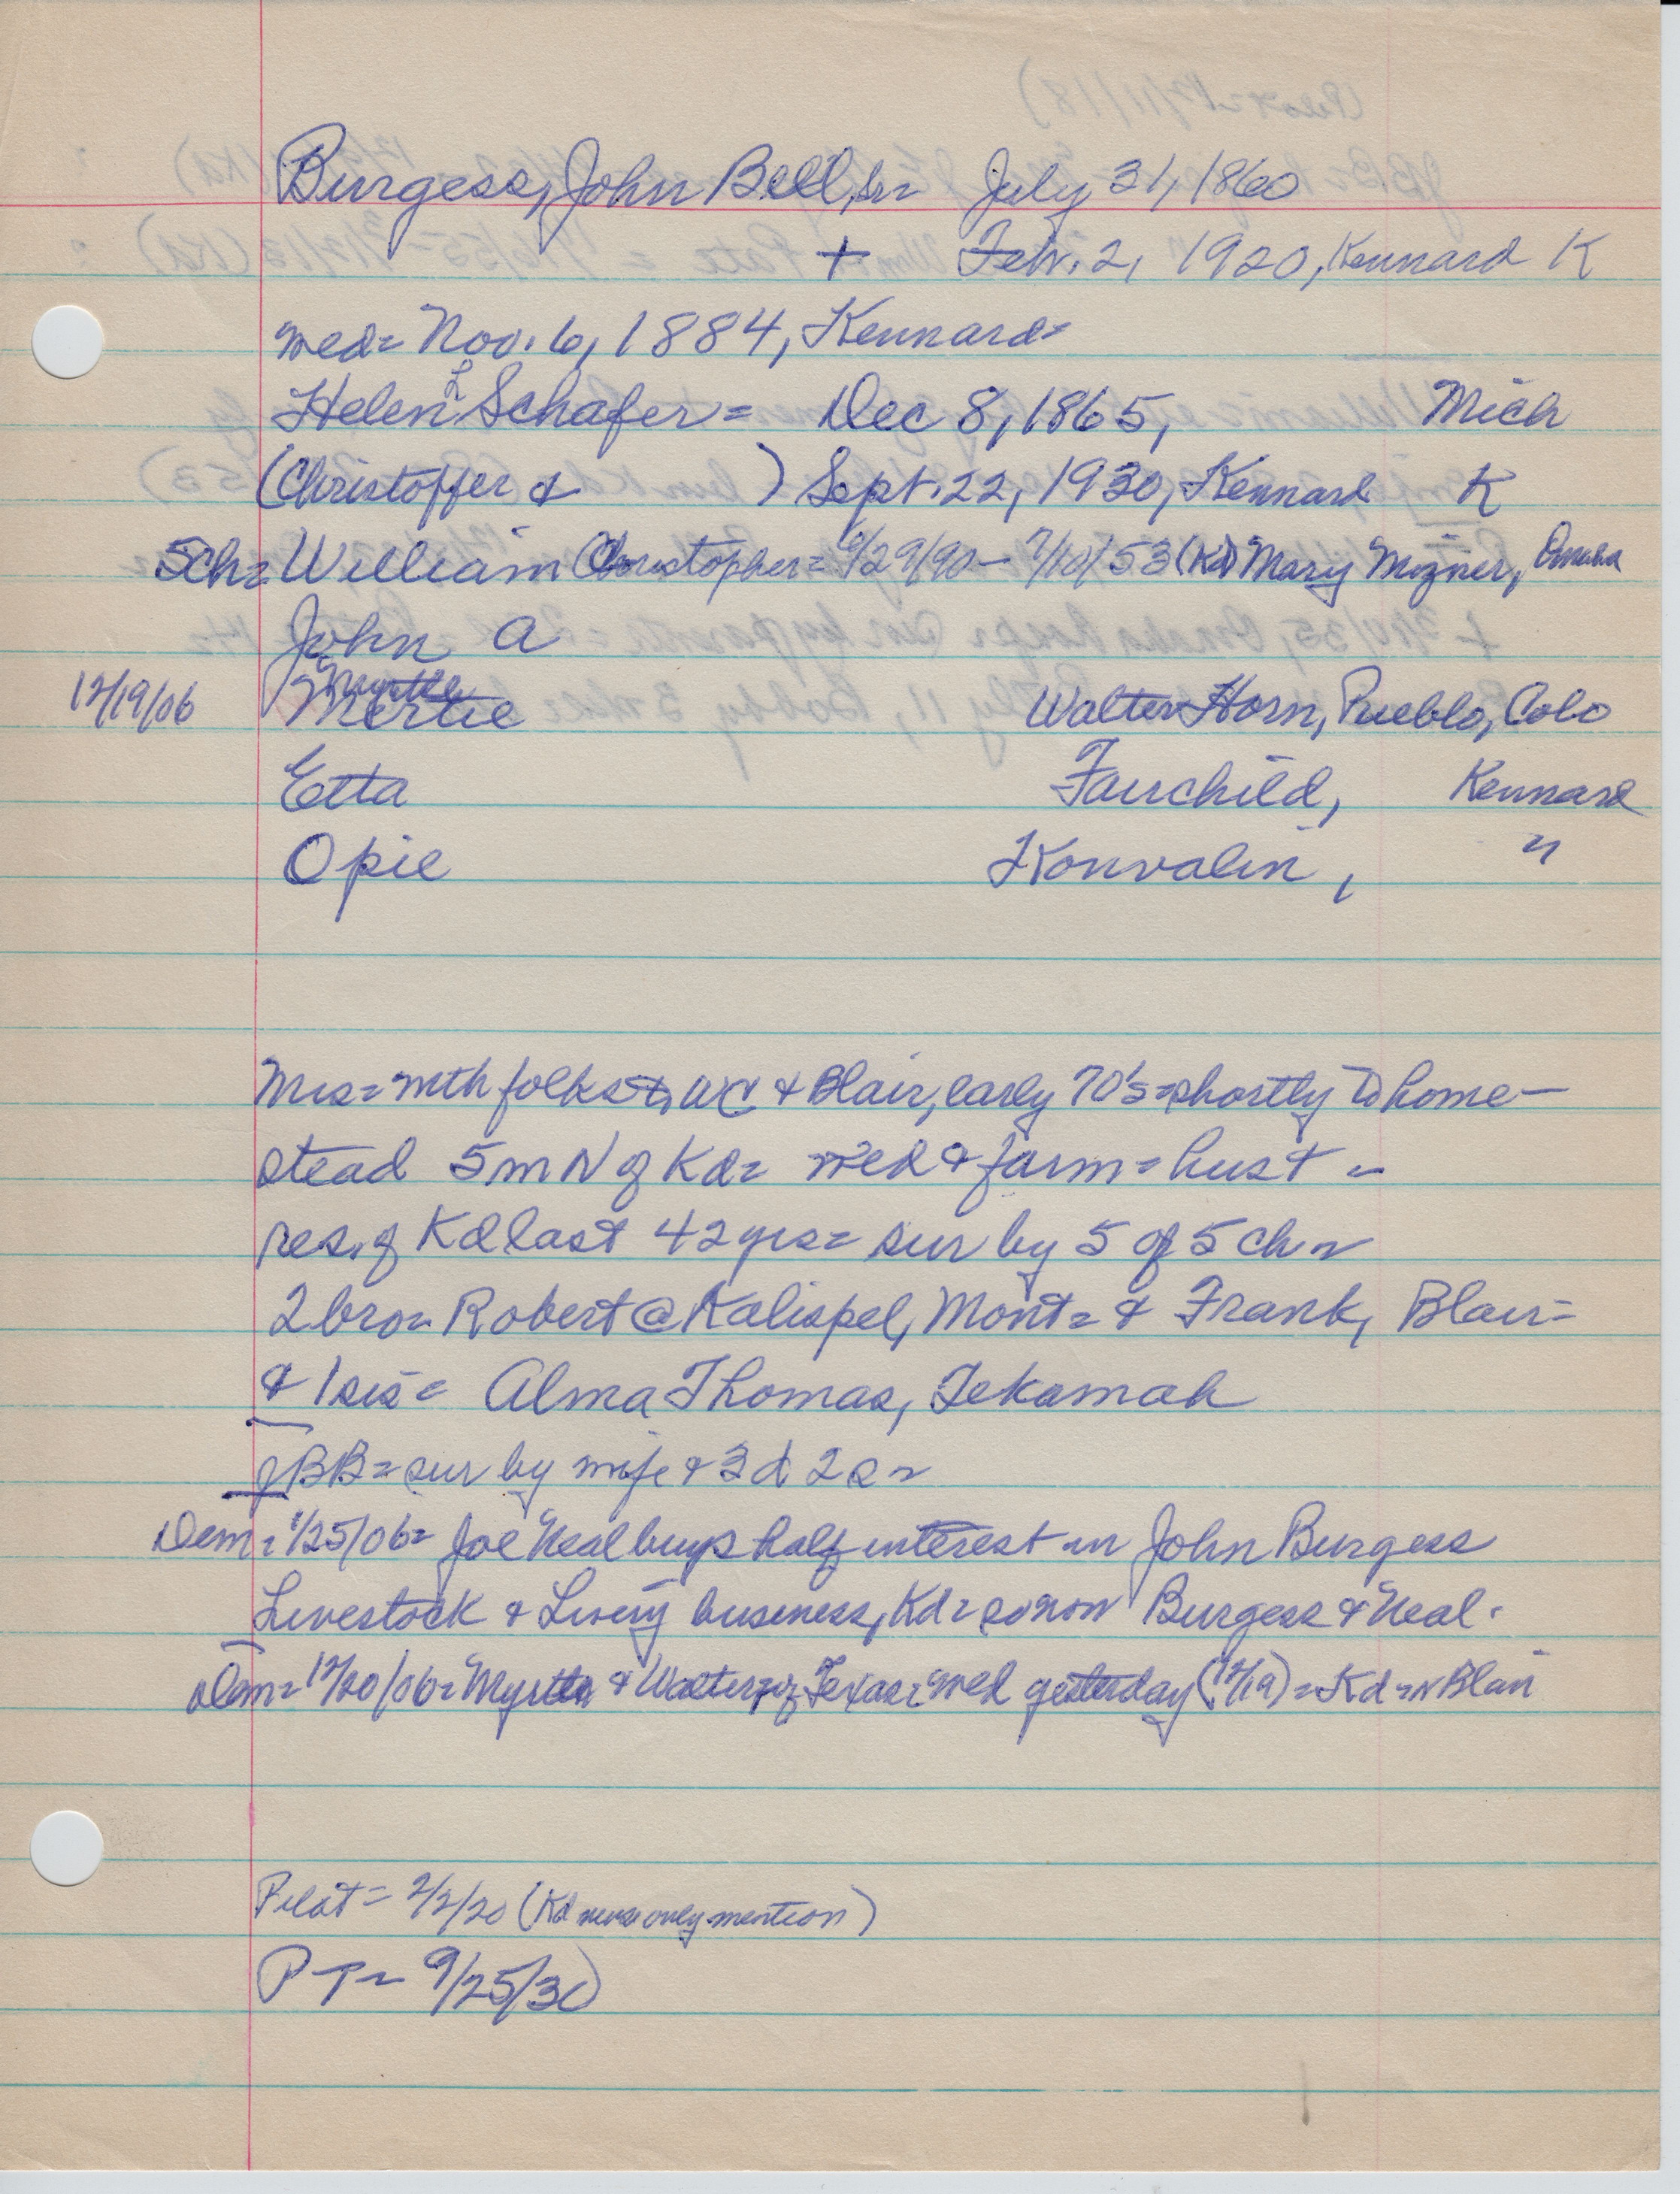 Burgess, John Bell, Sr = July 31, 1860
+ Feb. 2, 1920, Kennard K
wed = Nov. 6, 1884, Kennard =
Helen L Schafer = Dec 8, 1865, Mich
(Christoffer & ) Sept. 22, 1930, Kennard K
5ch = William Christopher = 9/29/90 - 7/10/53 (Kd) Mary Mizner, Omaha
John A
Myrtle
12/19/06 Mertie Walter Horn, Pueblo, Colo
Etta Fairchild, Kennard
Opie Konvalin, "
Mrs = with folks to WC & Blair, early 70's = shortly to home-
stead 5 m N of Kd = wed & farm = hust =
res. of Kd last 42 yrs = sur by 5 of 5 ch =
2 bro = Robert @ Kalispel, Mont = & Frank, Blair =
& 1 sis = Alma Thomas, Tekamah
JBB = sur by wife & 3 d 2 s =
Dem = 1/25/06 = Joe Neal buys half interest in John Burgess
Livestock & Livery business, Kd = so now Burgess & Neal.
Dem = 12/20/06 = Myrtle & Walter of Texas wed yesterday (12/19) = Kd = Blair
Pilot = 2/2/20 (Kd news only mention)
PT = 9/25/30